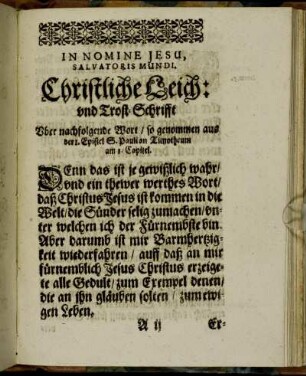 IN NOMINE JESU,
SALVATORIS MUNDI.
Christliche Leich:
vnd Trost-Schrifft
Vber nachfolgende Wort / so genommen aus
der 1. Epistel S. Pauli an Timotheum
am 1. Capitel.
DEnn das ist je gewißlich wahr/
vnd ein thewer werthes Wort/
daß Christus Jesus ist kommen in die
Welt/ die Sünder selig zumachen/ vn-
ter welchen ich der Fürnembste bin.
Aber darumb ist mir Barmhertzig-
keit wiederfahren/ auff daß an mir
fürnemblich Jesus Christus erzeige-
te alle Gedult/ zum Exempel denen/
die an ihn gläuben solten/ zum ewi-
gen Leben.
A ij Er-